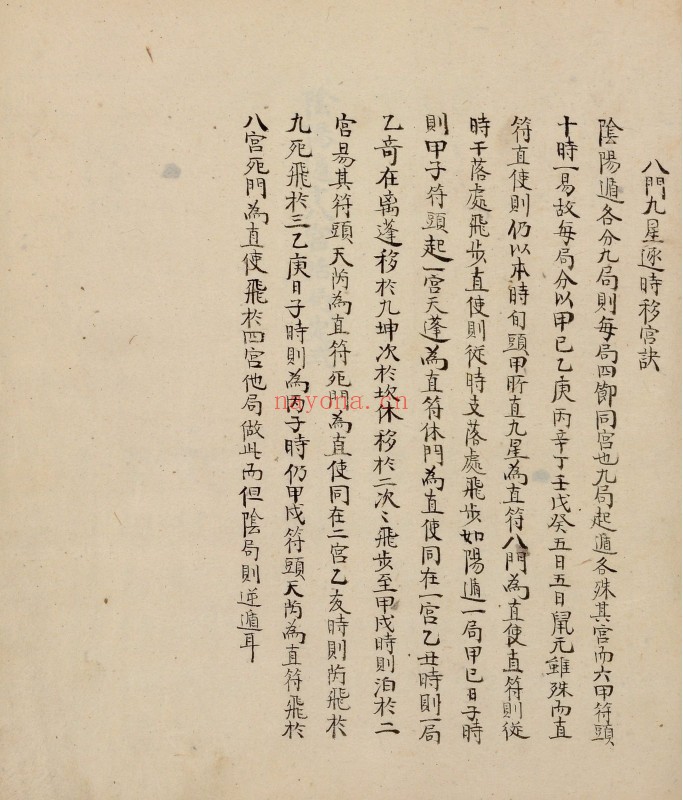 八門九星逐時移宮訣
陰陽遁各分九局則每局四節同宮也九局起遁各殊其宮而六甲符頭
十時一易故每局分以甲己乙庚丙辛丁壬戊癸五日五日鼠元雖殊而直
符直使則仍以本時旬頭甲所直九星為直符八門為直使直符則從
時干落處飛步直使則從時支落處飛步如陽遁一局甲己日子時
則甲子符頭起一宮天蓬為直符休門為直使同在一宮乙丑時則一局
乙竒在离蓬移於九坤次於坎休移於二次〻飛步至甲戌時則泊於二
宮易其符頭天芮為直符死門為直使同在二宮乙亥時則芮飛於
九死飛於三乙庚日子時則為丙子時仍甲戌符頭天芮為直符飛於
八宮死門為直使飛於四宮他局倣此而但陰局則逆遁耳
nayona.cn